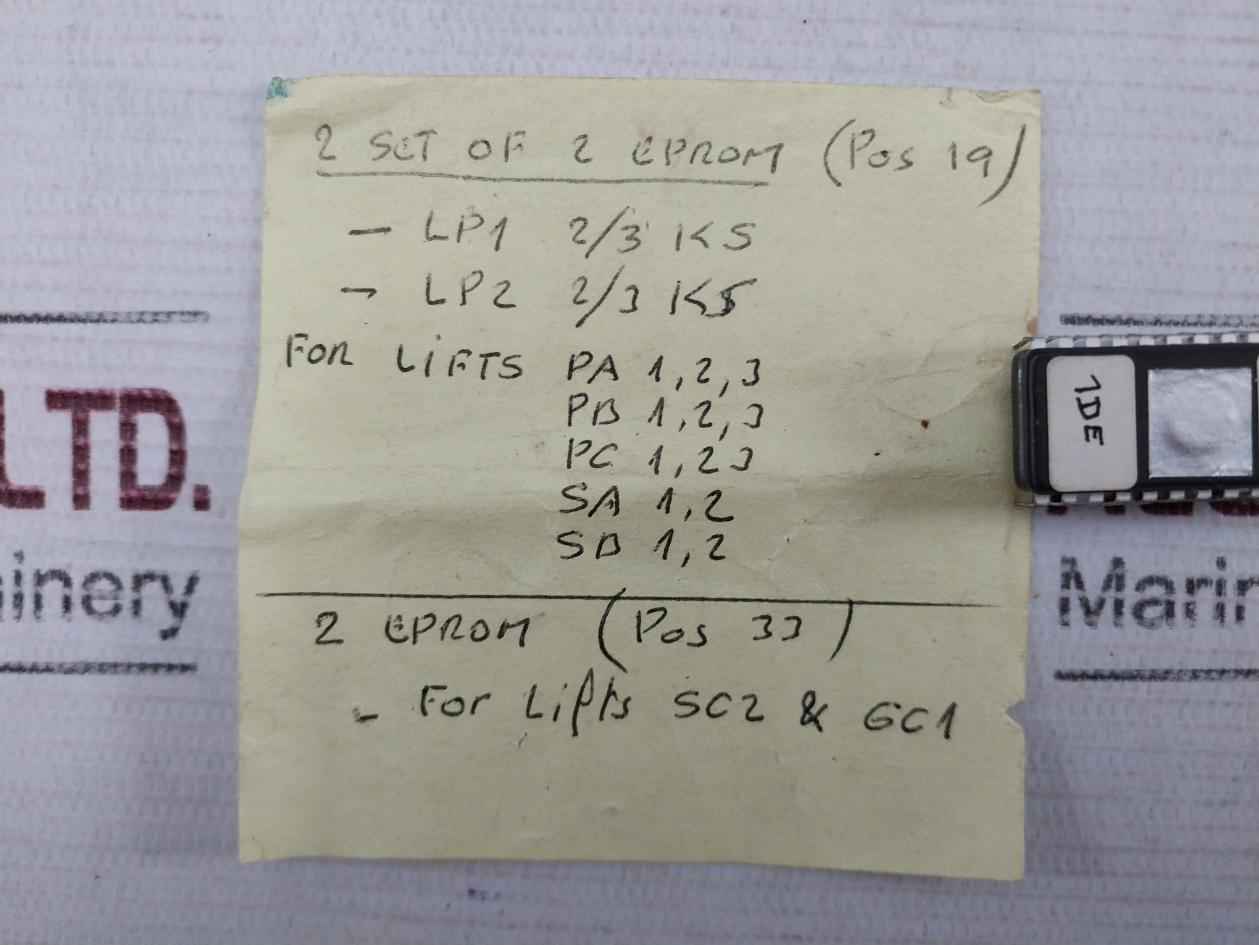 2 SET OF 2 EPROM (Pos 19)
– LP1 2/3 KS
– LP2 2/3 KS
FOR LiFTS PA 1,2,3
PB 1,2,3
PC 1,2 3
SA 1,2
SB 1,2
2 EPROM (Pos 33)
– For Lifts SC2 & GC1
1DE
LTD.
inery
Marin